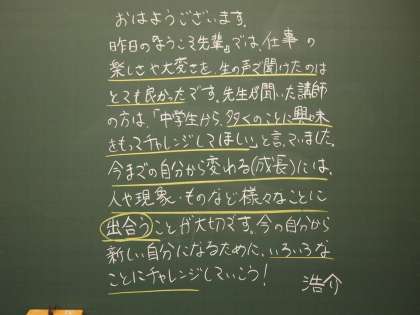 おはようございます。
昨日の『ようこそ先輩』では、仕事の
楽しさや大変さを、生の声で聞けたのは
とても良かったです。先生が聞いた講師
の方は、「中学生から、多くのことに興味
をもってチャレンジしてほしい」と言っていました。
今までの自分から変わる(成長)には、
人や現象・ものなど様々なことに
出合うことが大切です。今の自分から
新しい自分になるために、いろいろな
ことにチャレンジしていこう!
浩介